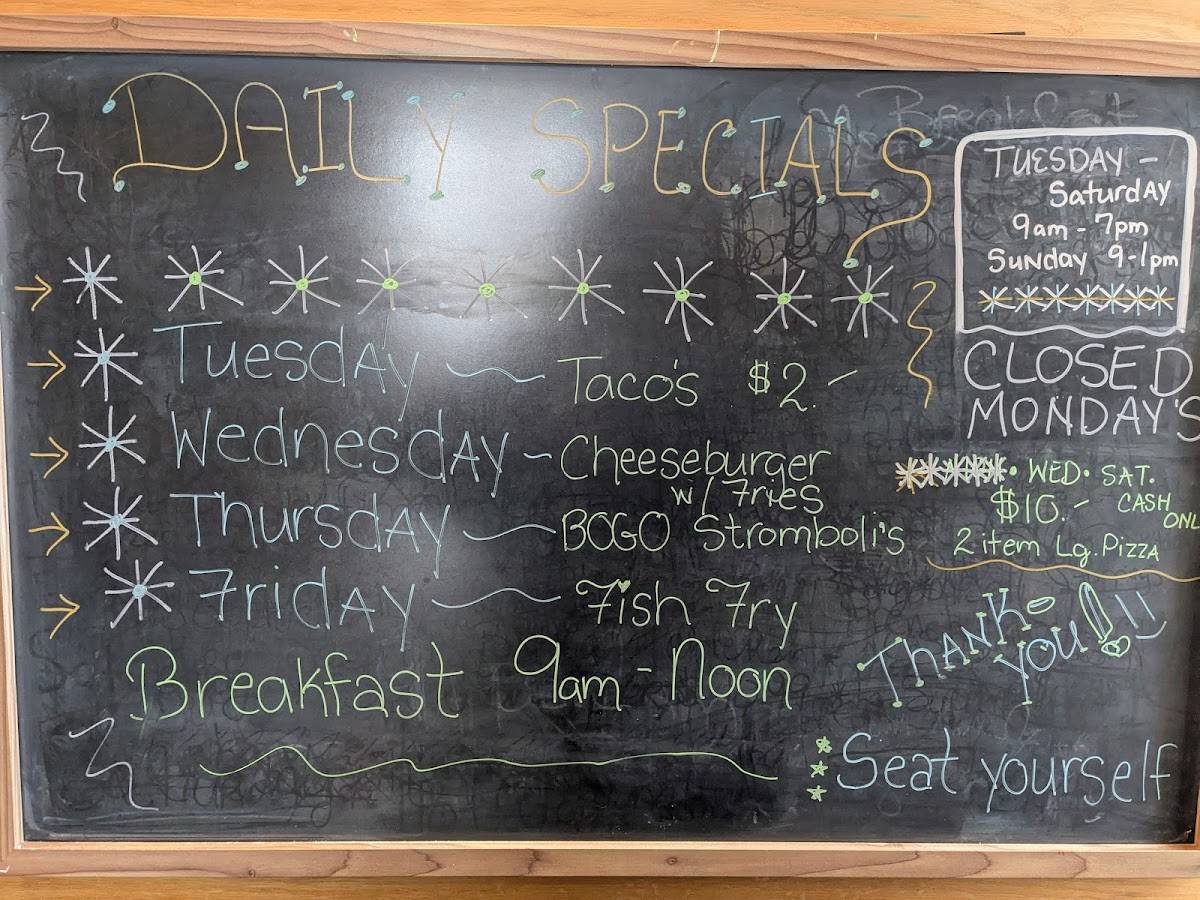 DAILY SPECIALS
Tuesday ~ Taco's $2.-
Wednesday - Cheeseburger
w/ Fries
Thursday ~ BOGO Stromboli's
Friday ~ Fish Fry
Breakfast 9am - Noon
Breakfast
TUESDAY -
Saturday
9am - 7pm
Sunday 9-1pm
CLOSED
MONDAY'S
• WED • SAT.
$10.- CASH
2 item Lg. Pizza
THANK-
YOU!!!
Seat yourself